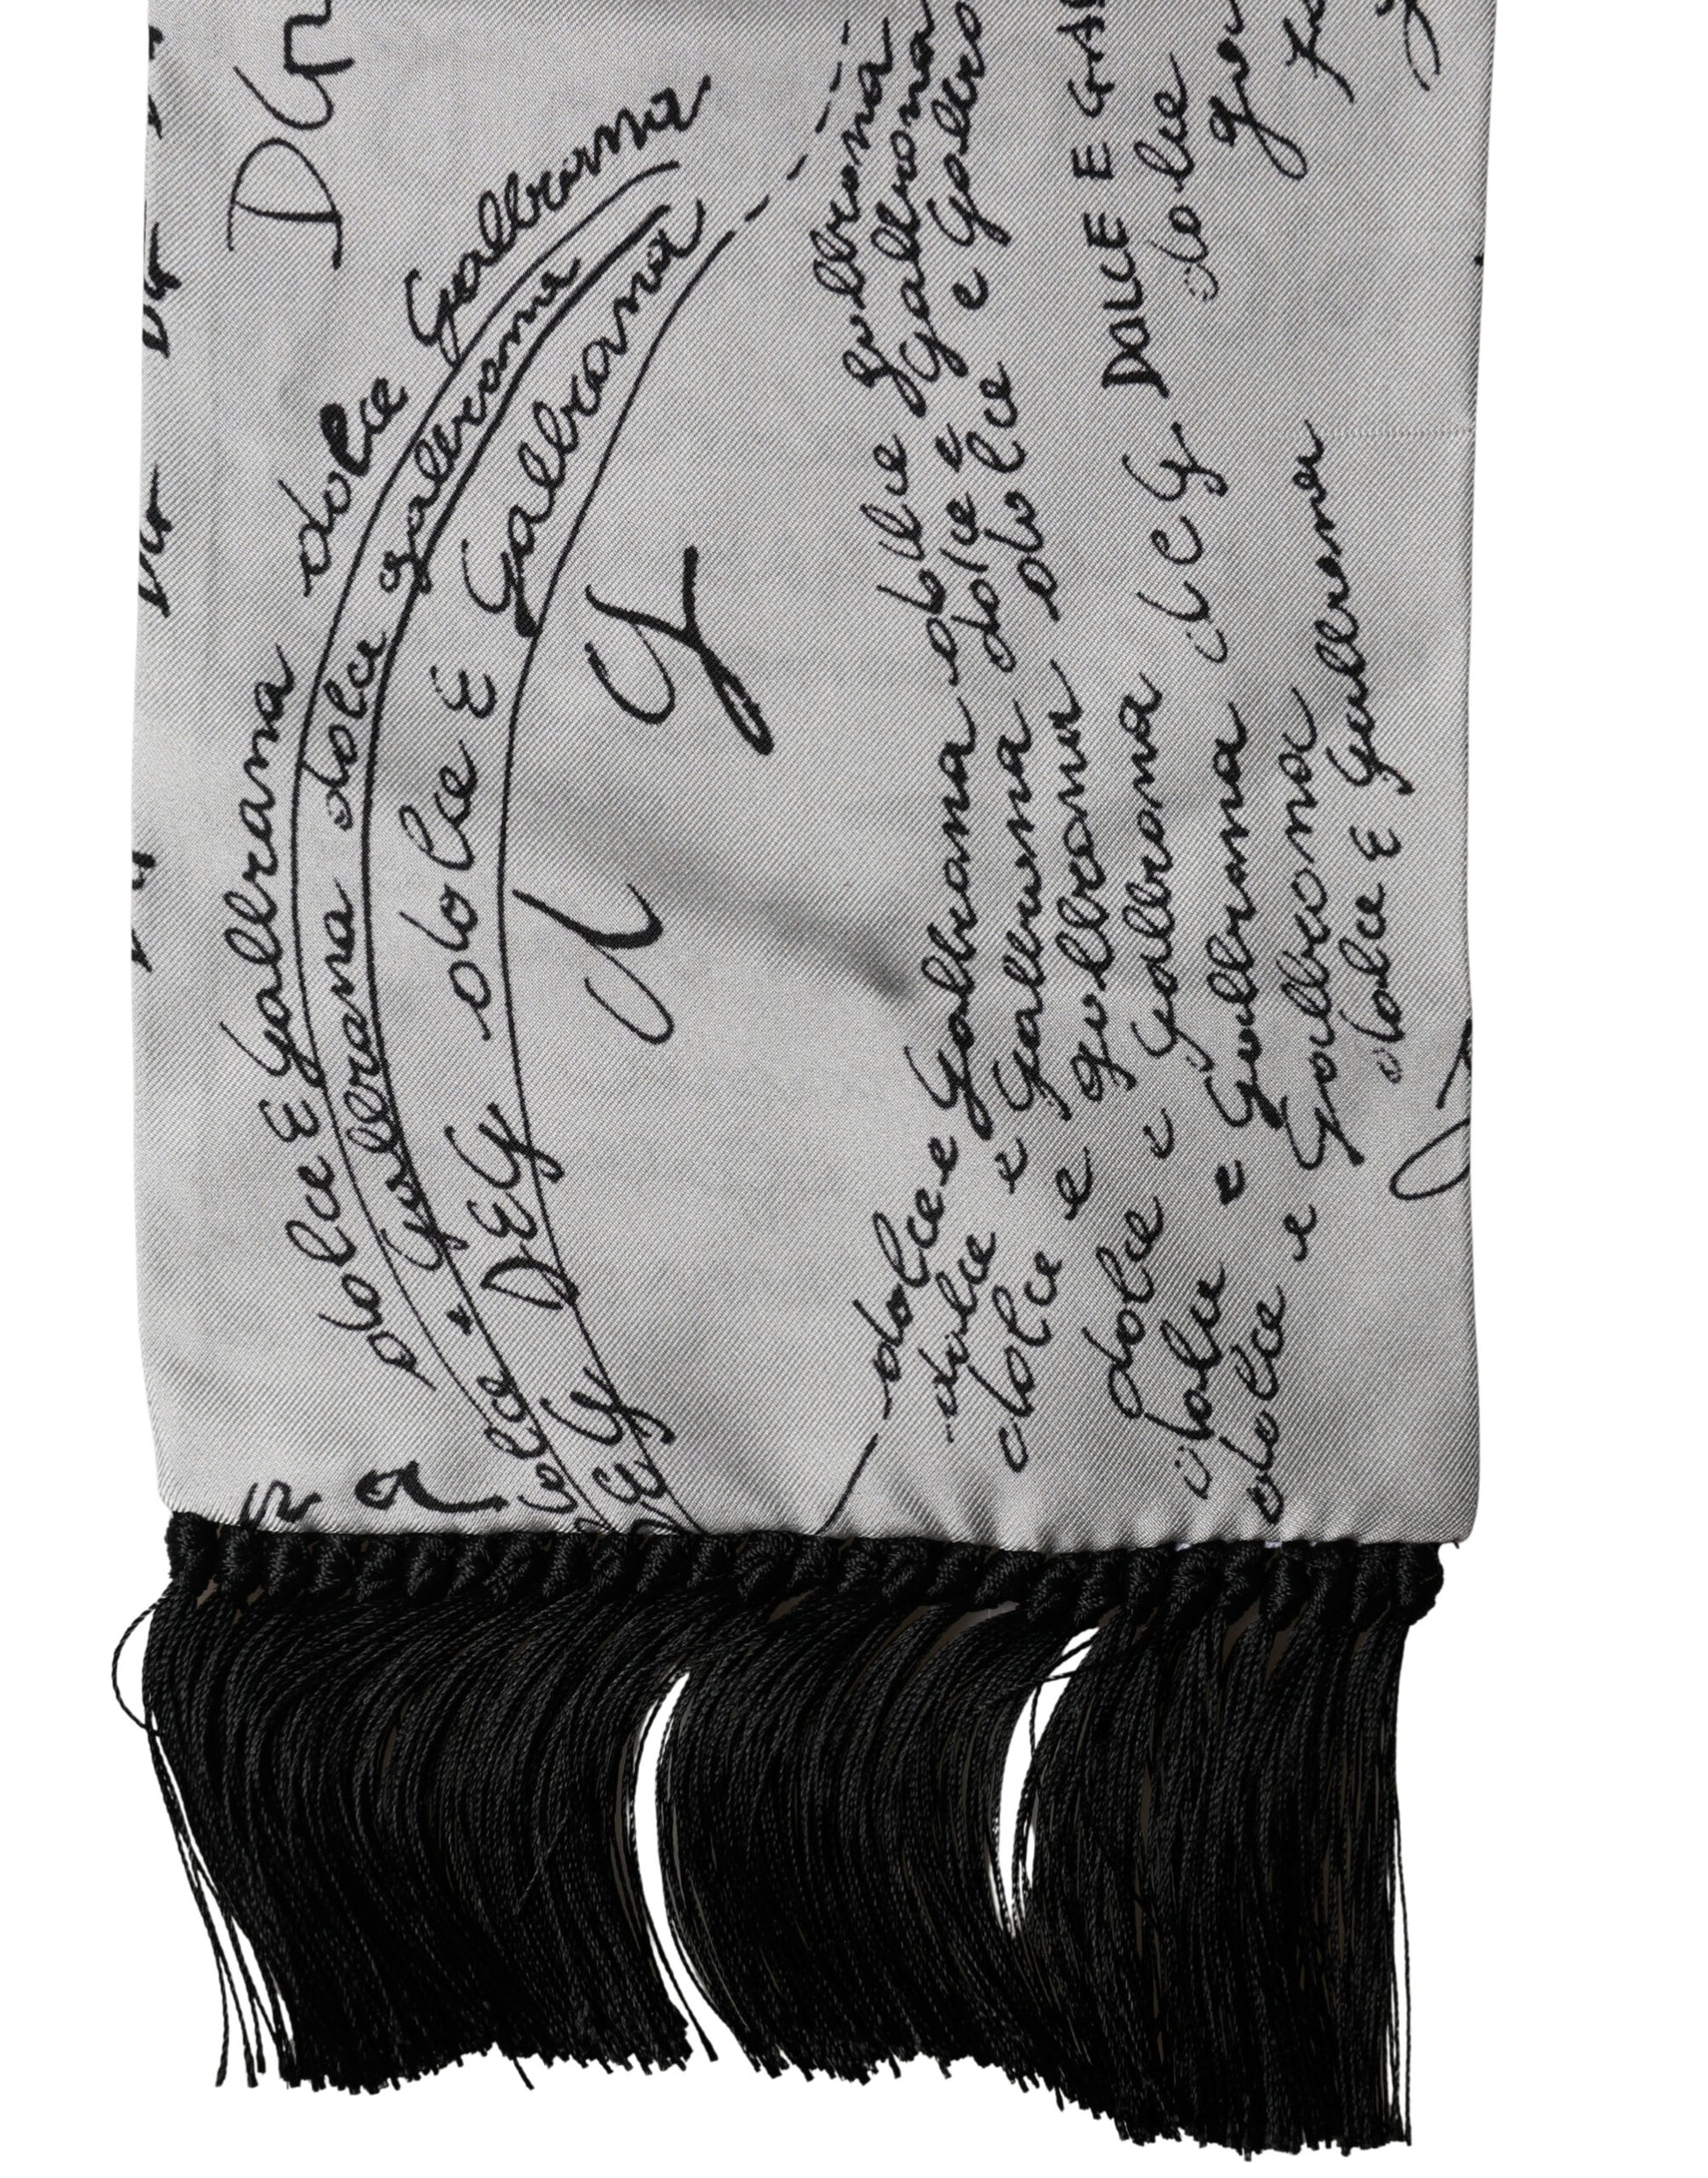 DG DG
DG
dolce E Gabbana dolce Gabbana
dolce & Gabbana dolce gabbana
DEG DEG dolce E Gabbana
d G
dolce e Gabbana dolce gabbana
dolce e Gabbana dolce e Gabbana
dolce e gabbana dolce e Gabbana
dolce e Gabbana d e G DOLCE E
dolce e Gabbana dolce
dolce e Gabbana
dolce E Gabbana